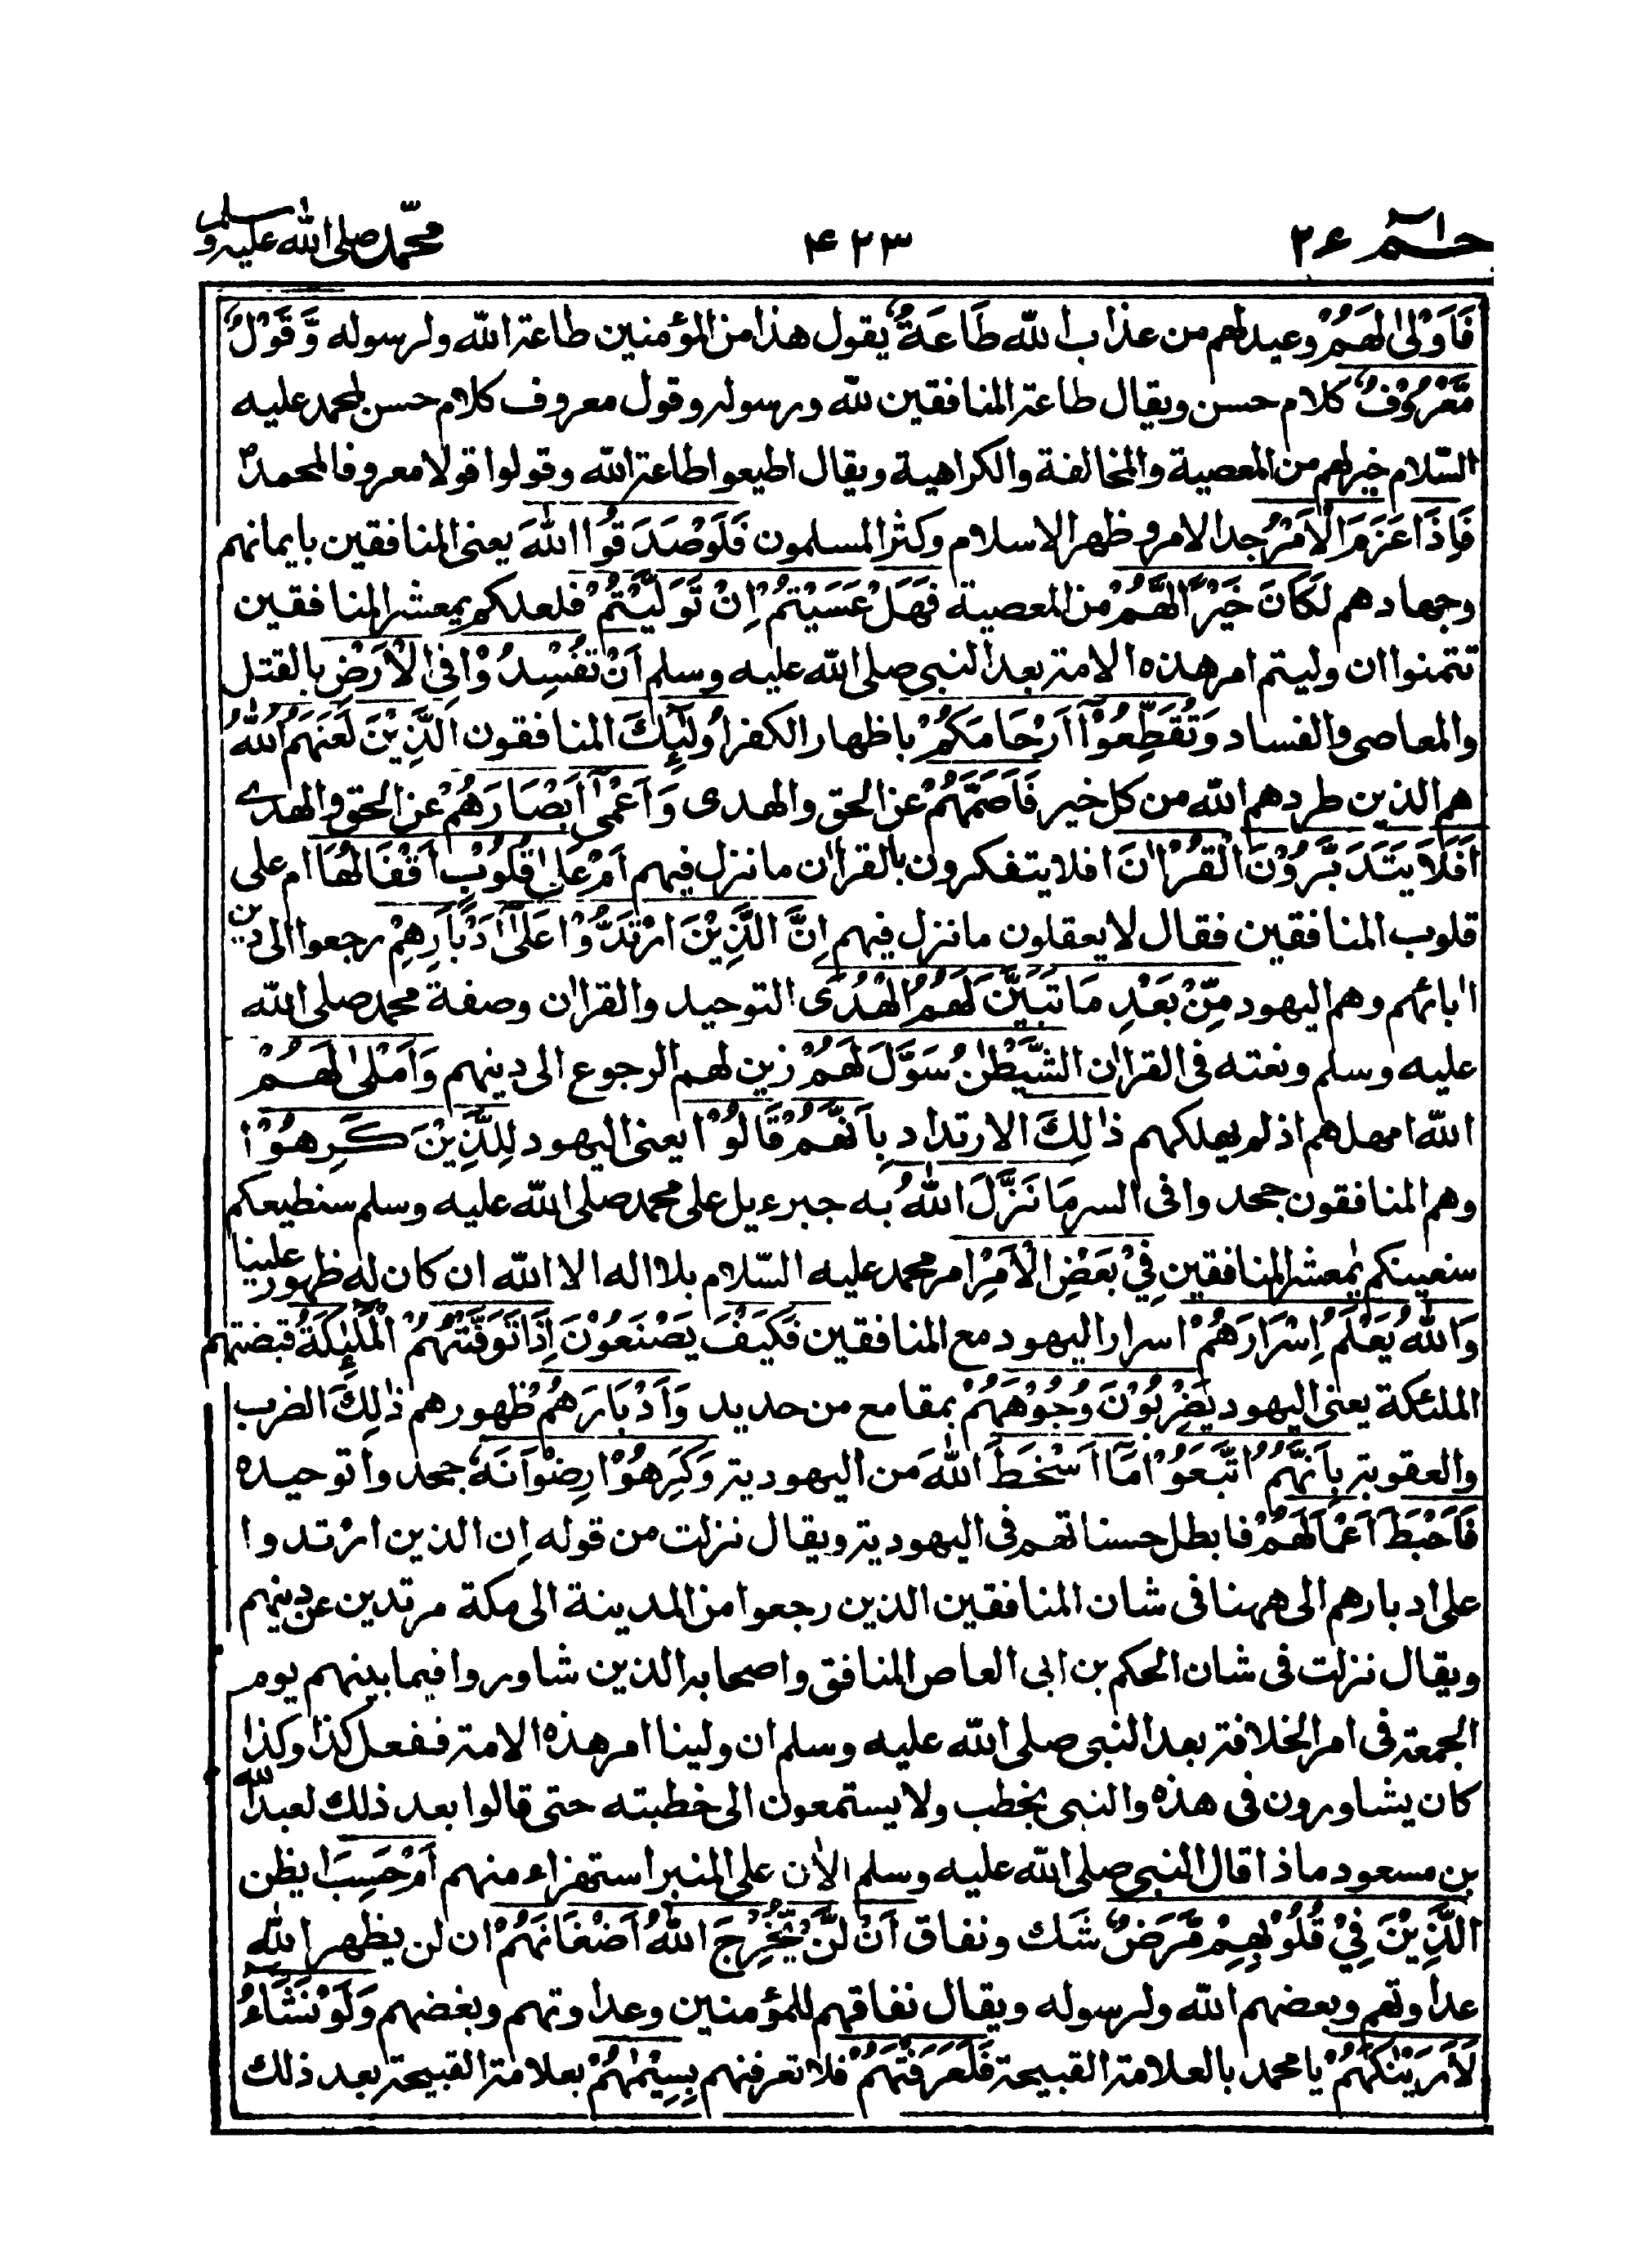 حٰمٓ ٢٦ ٤٢٣ محمّد صلی اللّٰه علیه وسلم
فَاَوْلٰى لَهُمْ وعيد لهم من عذاب اللّٰه طَاعَةٌ يقول هذا من المؤمنين طاعة اللّٰه ولرسوله وَّقَوْلٌ
مَّعْرُوْفٌ كلام حسن ويقال طاعة المنافقين للّٰه ورسوله وقول معروف كلام حسن لمحمد عليه
السّلام خير لهم من المعصية والمخالفة والكراهية ويقال اطيعوا طاعة اللّٰه وقولوا قولا معروفا لمحمدؐ
فَاِذَا عَزَمَ الْاَمْرُ جد الامر وظهر الاسلام وكثر المسلمون فَلَوْ صَدَقُوا اللّٰهَ يعنى المنافقين بايمانهم
وجهادهم لَكَانَ خَيْرًا لَّهُمْ من المعصية فَهَلْ عَسَيْتُمْ اِنْ تَوَلَّيْتُمْ فلعلكم يٰمعشر المنافقين
تتمنوا ان وليتم امر هذه الامة بعد النبى صلى اللّٰه عليه وسلم اَنْ تُفْسِدُوْا فِى الْاَرْضِ بالقتل
والمعاصى والفساد وَتُقَطِّعُوْٓا اَرْحَامَكُمْ باظهار الكفر اُولٰٓئِكَ المنافقون الَّذِيْنَ لَعَنَهُمُ اللّٰهُ
هم الذين طردهم اللّٰه من كل خير فَاَصَمَّهُمْ عن الحق والهدى وَاَعْمٰٓى اَبْصَارَهُمْ عن الحق والهدے
اَفَلَا يَتَدَبَّرُوْنَ الْقُرْاٰنَ افلا يتفكرون بالقراٰن ما نزل فيهم اَمْ عَلٰى قُلُوْبٍ اَقْفَالُهَا ام على
قلوب المنافقين فقال لا يعقلون ما نزل فيهم اِنَّ الَّذِيْنَ ارْتَدُّوْا عَلٰٓى اَدْبَارِهِمْ رجعوا الى دين
اٰبائهم وهم اليهود مِّنْۢ بَعْدِ مَا تَبَيَّنَ لَهُمُ الْهُدَى التوحيد والقراٰن وصفة محمد صلى اللّٰه
عليه وسلم ونعته فى القراٰن الشَّيْطٰنُ سَوَّلَ لَهُمْ زين لهم الرجوع الى دينهم وَاَمْلٰى لَهُمْ
اللّٰه امهلهم اذ لم يهلكهم ذٰلِكَ الارتداد بِاَنَّهُمْ قَالُوْا يعنى اليهود لِلَّذِيْنَ كَرِهُوْا
وهم المنافقون جحدوا فى السر مَا نَزَّلَ اللّٰهُ به جبرءيل على محمد صلى اللّٰه عليه وسلم سنطيعكم
سنعينكم يٰمعشر المنافقين فِيْ بَعْضِ الْاَمْرِ امر محمد عليه السّلام بلا اله الا اللّٰه ان كان له ظهور علينا
وَاللّٰهُ يَعْلَمُ اِسْرَارَهُمْ اسرار اليهود مع المنافقين فَكَيْفَ يَصْنَعُوْنَ اِذَا تَوَفَّتْهُمُ الْمَلٰٓئِكَةُ قبضتهم
الملئكة يعنى اليهود يَضْرِبُوْنَ وُجُوْهَهُمْ بمقامع من حديد وَاَدْبَارَهُمْ ظهورهم ذٰلِكَ الضرب
والعقوبة بِاَنَّهُمُ اتَّبَعُوْا مَآ اَسْخَطَ اللّٰهَ من اليهودية وَكَرِهُوْا رِضْوَانَهٗ جحدوا توحيده
فَاَحْبَطَ اَعْمَالَهُمْ فابطل حسناتهم فى اليهودية ويقال نزلت من قوله اِن الذين ارْتدوا
على ادبارهم الى ههنا فى شان المنافقين الذين رجعوا من المدينة الى مكة مرتدين عن دينهم
ويقال نزلت فى شان الحكم بن ابى العاص المنافق واصحابه الذين شاوروا فيما بينهم يوم
الجمعة فى امر الخلافة بعد النبى صلى اللّٰه عليه وسلم ان ولينا امر هذه الامة ففعل كذا وكذا
كان يشاورون فى هذه والنبى يخطب ولا يستمعون الى خطبته حتى قالوا بعد ذلك لعبد اللّٰه
بن مسعود ما ذا قال النبى صلى اللّٰه عليه وسلم الاٰن على المنبر استهزاء منهم اَمْ حَسِبَ ايظن
الَّذِيْنَ فِيْ قُلُوْبِهِمْ مَّرَضٌ شك ونفاق اَنْ لَّنْ يُّخْرِجَ اللّٰهُ اَضْغَانَهُمْ ان لن يظهر اللّٰه
عداوتهم وبعضهم اللّٰه ولرسوله ويقال نفاقهم للمؤمنين وعداوتهم وبغضهم وَلَوْ نَشَآءُ
لَاَرَيْنٰكَهُمْ يا محمد بالعلامة القبيحة فَلَعَرَفْتَهُمْ فلا تعرفنهم بِسِيْمٰهُمْ بعلامة القبيحة بعد ذلك